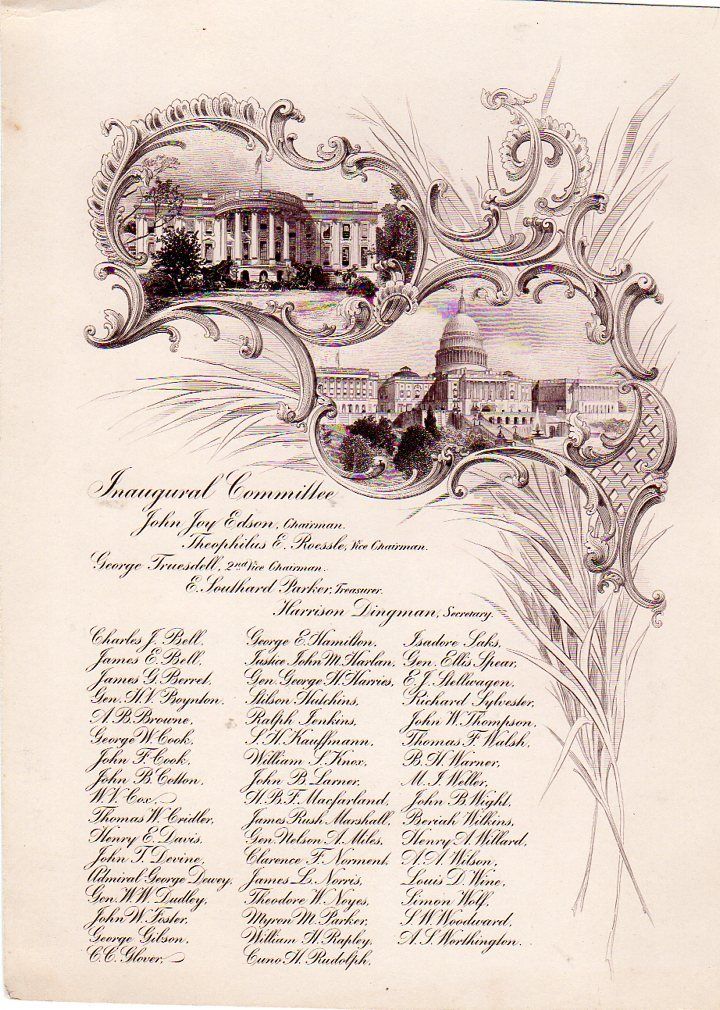 Inaugural Committee
John Joy Edson, Chairman.
Theophilus E. Roessle, Vice Chairman.
George Truesdell, 2nd Vice Chairman.
E. Southard Parker, Treasurer.
Harrison Dingman, Secretary.
Charles J. Bell,
James E. Bell,
James G. Berret,
Gen. H. V. Boynton,
A. B. Browne,
George W. Cook,
John F. Cook,
John B. Cotton,
W. V. Cox,
Thomas W. Cridler,
Henry E. Davis,
John T. Devine,
Admiral George Dewey,
Gen. W. W. Dudley,
John W. Foster,
George Gibson,
C. C. Glover,
George E. Hamilton,
Justice John M. Harlan,
Gen. George H. Harries,
Stilson Hutchins,
Ralph Jenkins,
S. H. Kauffmann,
William S. Knox,
John B. Larner,
H. B. F. Macfarland,
James Rush Marshall,
Gen. Nelson A. Miles,
Clarence F. Norment,
James L. Norris,
Theodore W. Noyes,
Myron M. Parker,
William H. Rapley,
Cuno H. Rudolph,
Isadore Saks,
Gen. Ellis Spear,
E. J. Stellwagen,
Richard Sylvester,
John W. Thompson,
Thomas F. Walsh,
B. H. Warner,
M. I. Weller,
John B. Wight,
Beriah Wilkins,
Henry A. Willard,
A. A. Wilson,
Louis D. Wine,
Simon Wolf,
S. W. Woodward,
A. S. Worthington.